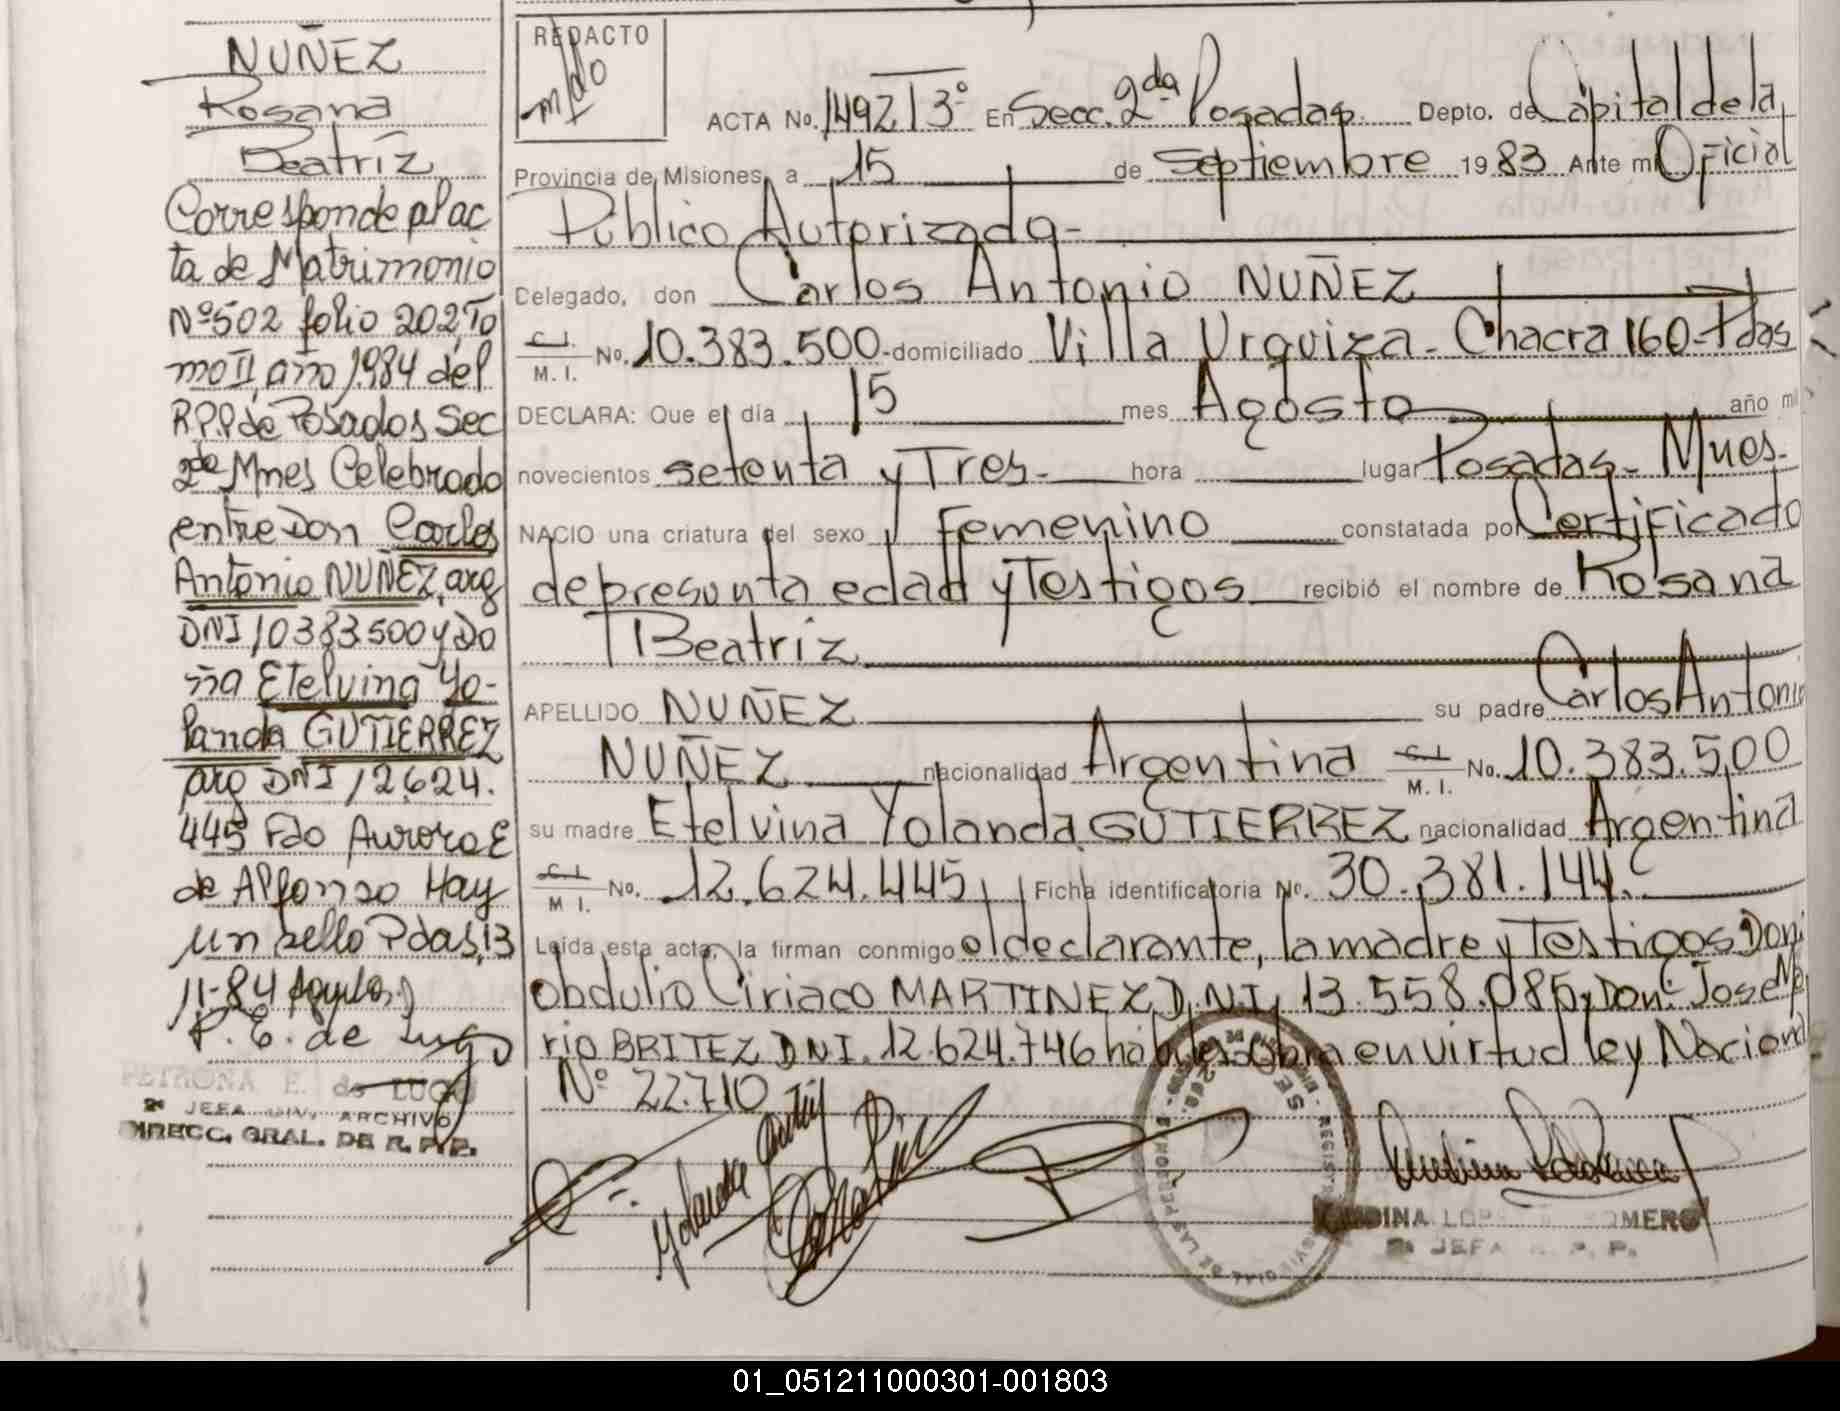 NUÑEZ
Rosana
Beatríz
Corresponde al ac
ta de Matrimonio
Nº502 folio 202, To
mo II, año 1984 del
R.P.P de Posadas Sec
2da Mnes Celebrado
entre Don Carlos
Antonio NUÑEZ, arg
DNI 10383.500 y Do
ña Etelvina Yo-
landa GUTIERREZ
arg DNI 12.624.
445 Fdo Aurora E
de Alfonso Hay
un sello Pdas, 13
11-84
P. E. de Lugo
PETRONA E. de LUGO
2ª JEFA DIV. ARCHIVO
DIRECC. GRAL. DE R. P. P.
REDACTO
ACTA No. 1492 T 3º En Secc. 2da Posadas Depto. de Capital de la
Provincia de Misiones, a 15 de Septiembre 1983 Ante mi Oficial
Público Autorizada-
Delegado, don Carlos Antonio NUÑEZ
C.I. M. I. No. 10.383.500-domiciliado Villa Urquiza- Chacra 160-Pdas
DECLARA: Que el día 15 mes Agosto año mil
novecientos setenta y Tres- hora lugar Posadas- Mnes-
NACIO una criatura del sexo Femenino constatada por Certificado
de presunta edad y Testigos recibió el nombre de Rosana
Beatríz
APELLIDO NUÑEZ su padre Carlos Antonio
NUÑEZ nacionalidad Argentina C.I. M. I. No. 10.383.500
su madre Etelvina Yolanda GUTIERREZ nacionalidad Argentina
C.I. M I. No. 12.624.445 Ficha identificatoria No. 30.381.144.
Leída esta acta, la firman conmigo el declarante, la madre y Testigos Don:
Obdulio Ciriaco MARTINEZ D.N.I. 13.558.085 y Don: Jose Ma
rio BRITEZ D.N.I. 12.624.746 hábiles Obra en virtud ley Nacional
Nº 22.710
Yolanda
ROMERO
2ª JEFA R. P. P.
01_051211000301-001803